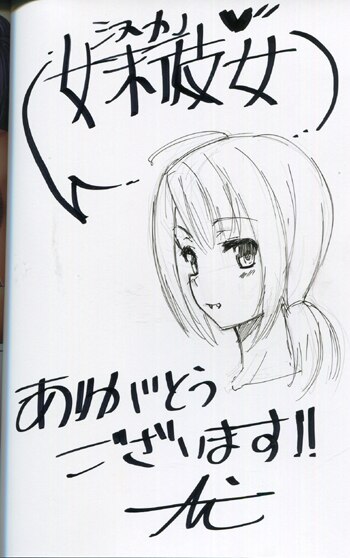 シスカノ
妹彼女♥
ありがとう
ございます!!